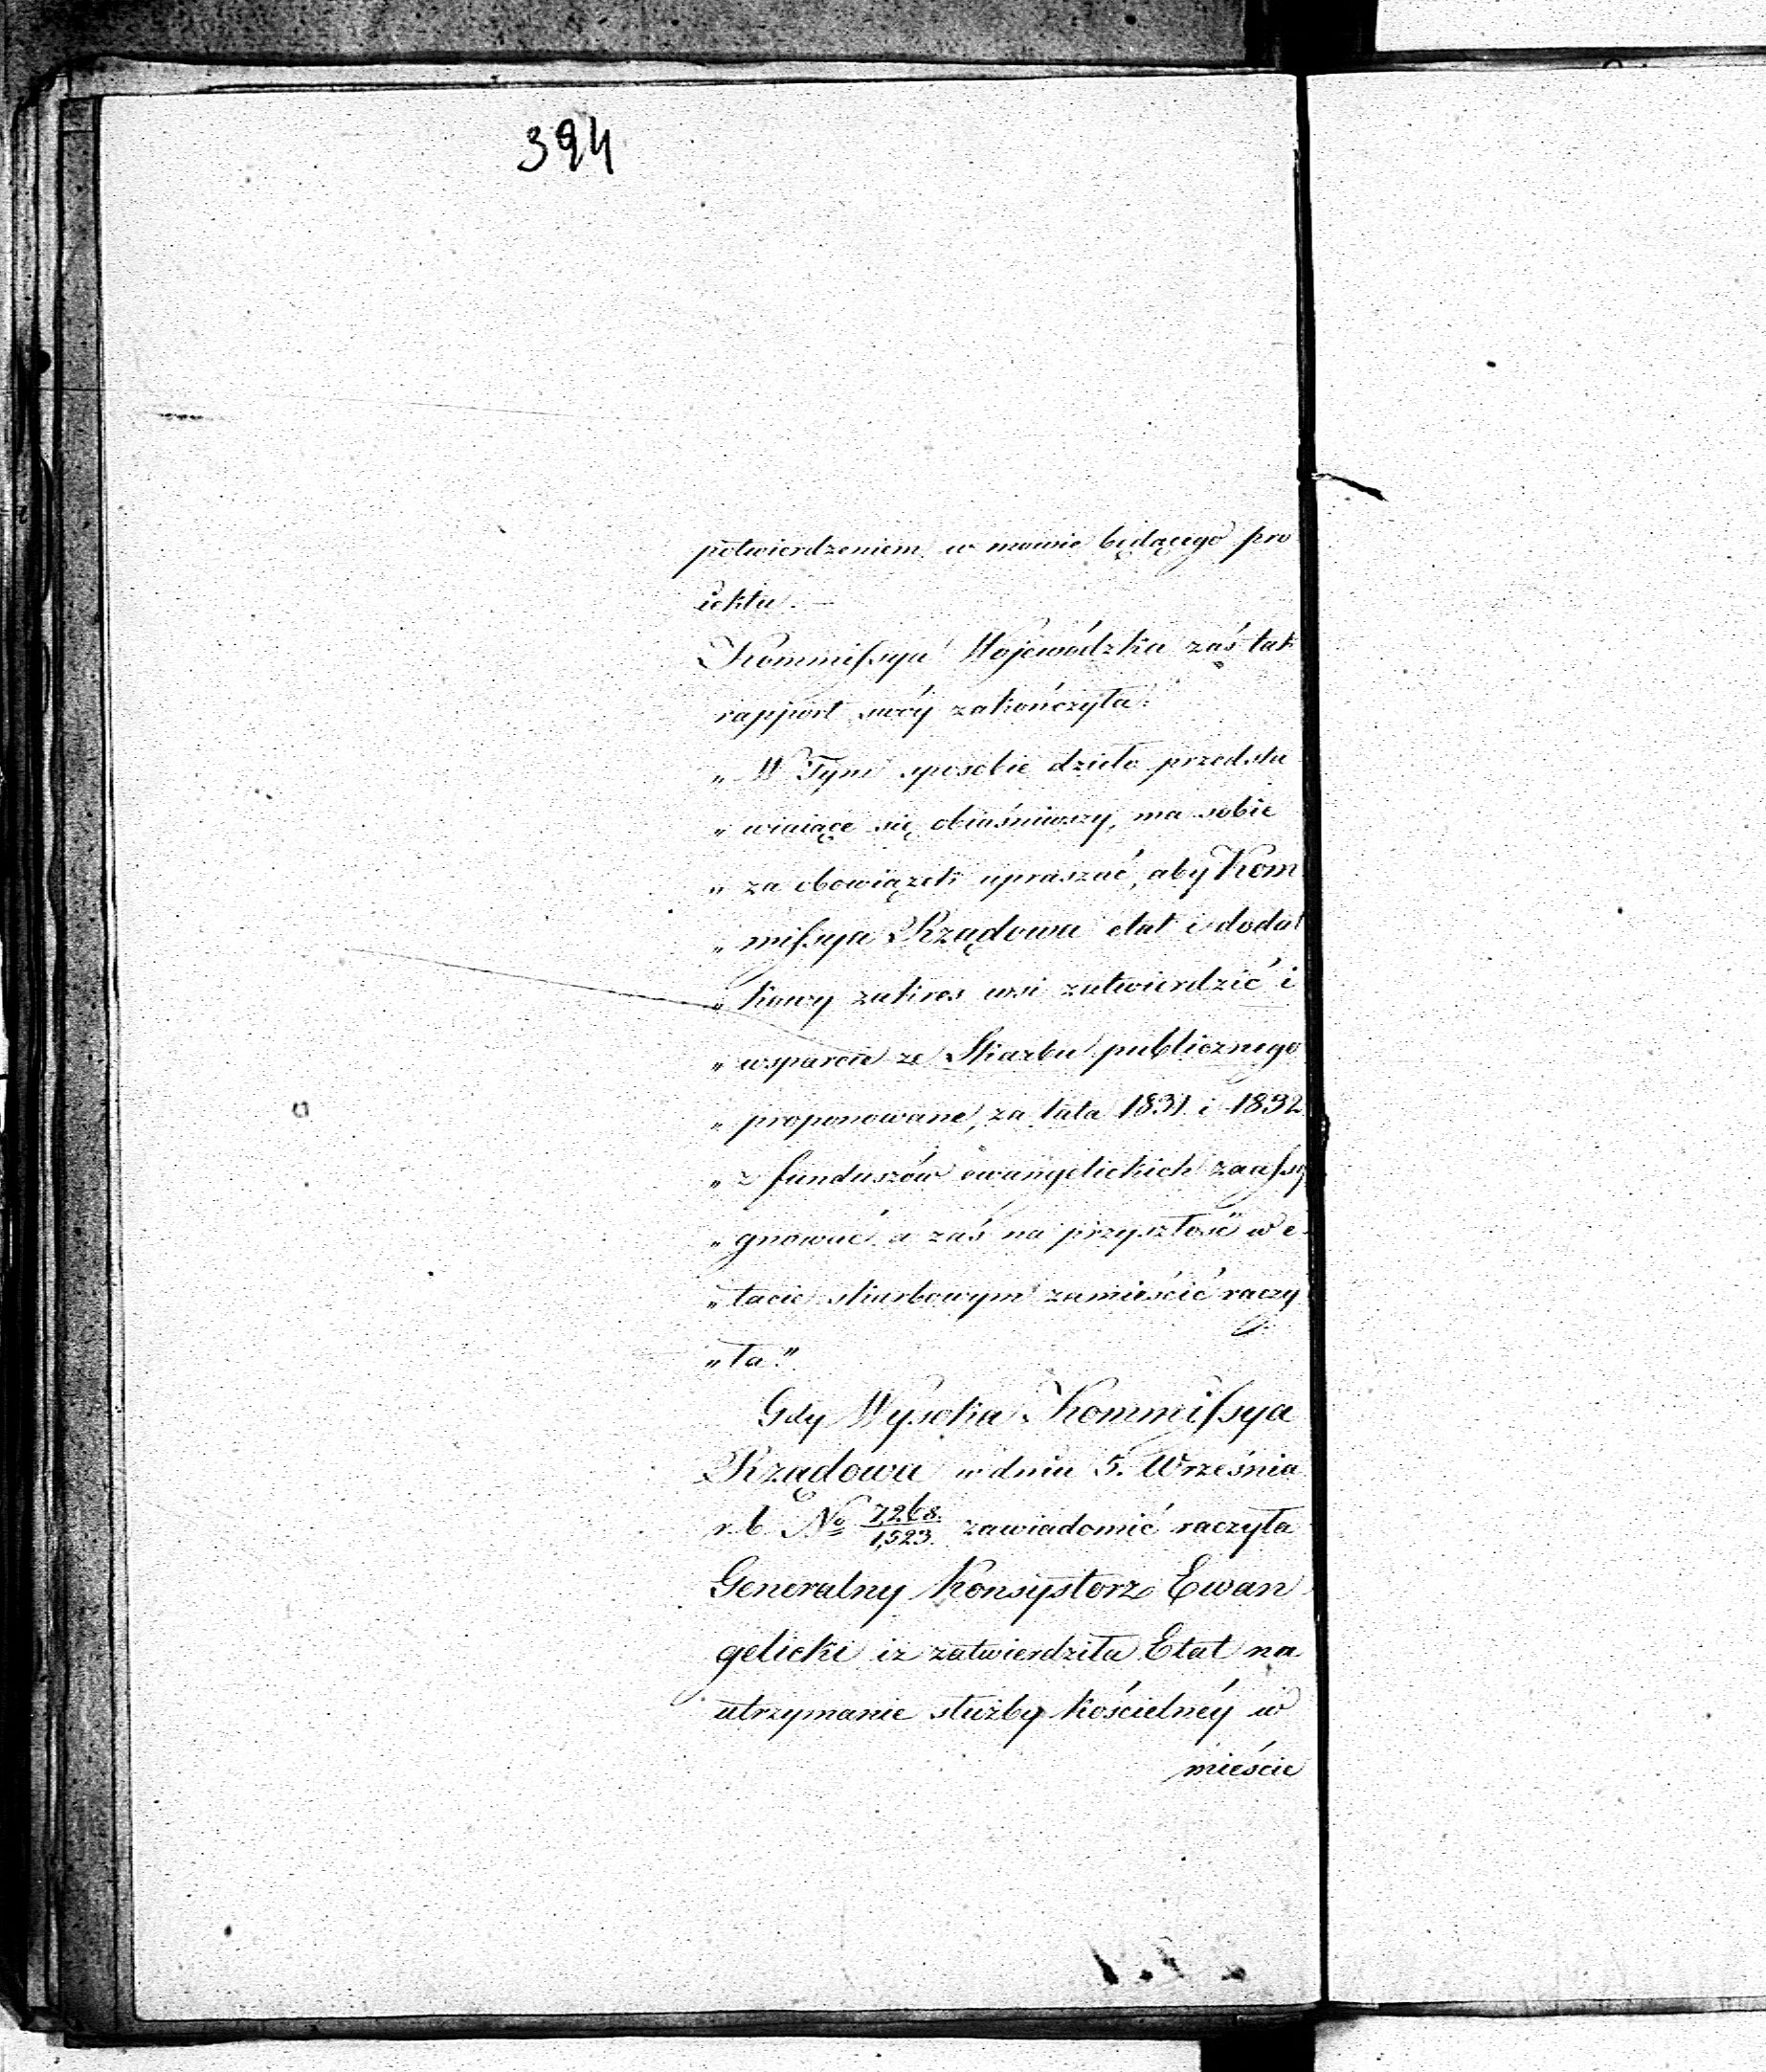 394
potwierdzeniem w mowie będącego pro
iektu. —
Kommissya Wojewódzka zaś tak
rapport swóy zakończyła:
„ W Tym sposobie dzieło przedsta
„ wiaiące się obiaśniwszy, ma sobie
„ za obowiązek upraszać, aby Kom
„ missya Rządowa etat i dodat
„ kowy zakres wsi zatwierdzić i
„ wsparcie ze Skarbu publicznego
„ proponowane, za lata 1831 i 1832
„ z funduszów ewangelickich zaassy
„ gnować a zaś na przyszłość w e
„ tacie skarbowym zamieścić raczy
„ ła."
Gdy Wysoka Kommissya
Rządowa w dniu 5. Września
r. b. No 7,268./1,523. zawiadomić raczyła
Generalny Konsystorz Ewan
gelicki iż zatwierdziła Etat na
utrzymanie służby kościelnéy w
mieście